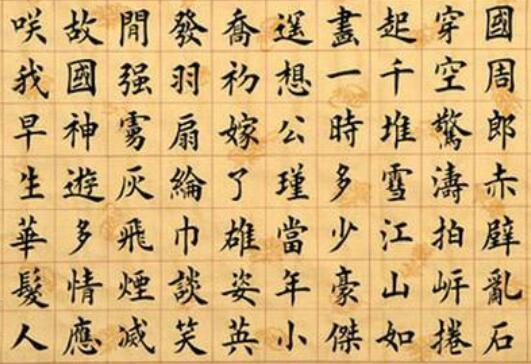 國周郎赤壁亂石
穿空驚濤拍岍捲
起千堆雪江山如
畫一時多少豪傑
遥想公瑾當年小
喬初嫁了雄姿英
發羽扇綸巾談笑
閒强虜灰飛煙滅
故國神遊多情應
咲我早生華髮人